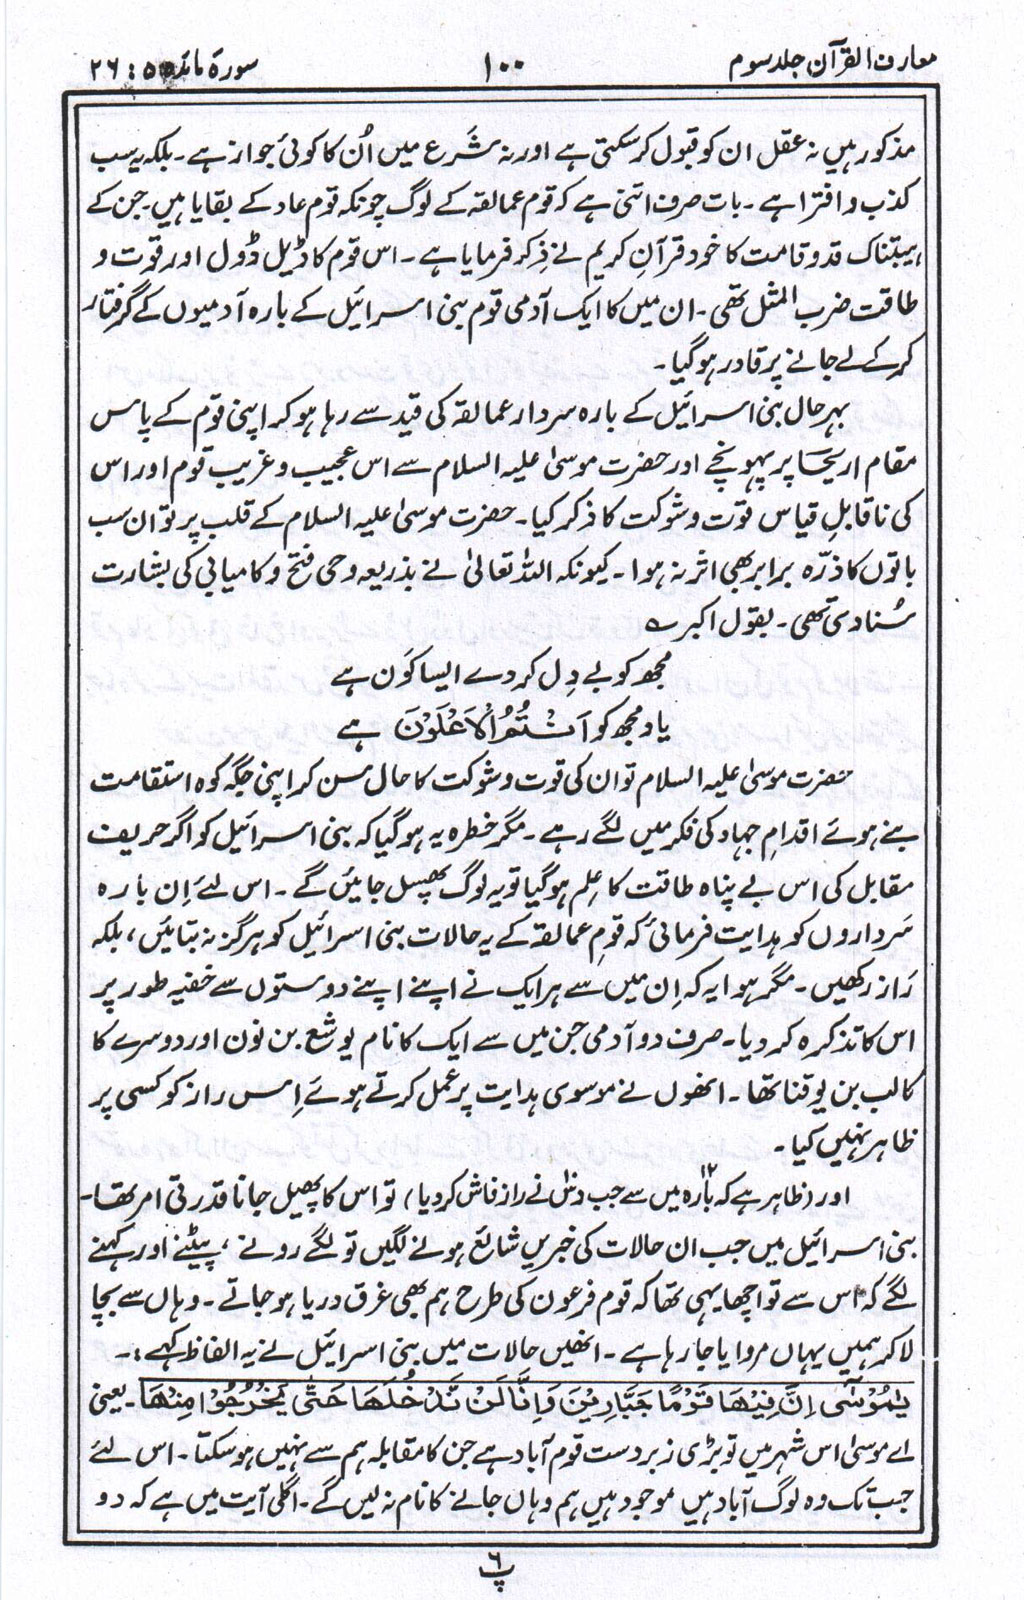 معارف القرآن جلد سوم
۱۰۰
سورۃ مائدہ ۵ : ۲۶
مذکور ہیں نہ عقل ان کو قبول کر سکتی ہے اور نہ شَرع میں اُن کا کوئی جواز ہے۔ بلکہ یہ سب
کذب و افترا ہے۔ بات صرف اتنی ہے کہ قوم عمالقہ کے لوگ چونکہ قوم عاد کے بقایا ہیں۔ جن کے
ہیبتناک قد و قامت کا خود قرآنِ کریم نے ذِکر فرمایا ہے۔ اس قوم کا ڈیل ڈول اور قوت و
طاقت ضرب المثل تھی۔ ان میں کا ایک آدمی قوم بنی اسرائیل کے بارہ آدمیوں کے گرفتار
کر کے لے جانے پر قادر ہو گیا۔
بہرحال بنی اسرائیل کے بارہ سردار عمالقہ کی قید سے رہا ہو کر اپنی قوم کے پاس
مقام اریحا پر پہونچے اور حضرت موسیٰ علیہ السلام سے اس عجیب و غریب قوم اور اس
کی ناقابلِ قیاس قوّت و شوکت کا ذکر کیا۔ حضرت موسیٰ علیہ السلام کے قلب پر تو ان سب
باتوں کا ذرّہ برابر بھی اثر نہ ہوا۔ کیونکہ اللہ تعالیٰ نے بذریعہ وحی فتح و کامیابی کی بشارت
سُنا دی تھی۔ بقول اکبر ؎
مجھ کو بے دِل کر دے ایسا کَون ہے
یاد مجھ کو اَنْتُمُ الْاَعْلَوْنَ ہے
حضرت موسیٰ علیہ السلام تو ان کی قوت و شوکت کا حال سن کر اپنی جگہ کوہ استقامت
بنے ہوئے اقدامِ جہاد کی فکر میں لگے رہے۔ مگر خطرہ یہ ہو گیا کہ بنی اسرائیل کو اگر حریف
مقابل کی اس بے پناہ طاقت کا عِلم ہو گیا تو یہ لوگ پھسل جائیں گے۔ اس لئے اِن بارہ
سَرداروں کو ہدایت فرمائی کہ قومِ عمالقہ کے یہ حالات بنی اسرائیل کو ہرگز نہ بتائیں، بلکہ
رَاز رکھیں۔ مگر ہوا یہ کہ اِن میں سے ہر ایک نے اپنے اپنے دوستوں سے خفیہ طور پر
اس کا تذکرہ کر دیا۔ صرف دو آدمی جن میں سے ایک کا نام یوشع بن نون اور دوسرے کا
کالب بن یوقنا تھا۔ انھوں نے موسوی ہدایت پر عمل کرتے ہوئے اِس راز کو کسی پر
ظاہر نہیں کیا۔
اور (ظاہر ہے کہ بارہ ۱۲ میں سے جب دس نے راز فاش کر دیا) تو اس کا پھیل جانا قدرتی امر تھا۔
بنی اسرائیل میں جب ان حالات کی خبریں شائع ہونے لگیں تو لگے رونے، پیٹنے اور کہنے
لگے کہ اس سے تو اچھا یہی تھا کہ قوم فرعون کی طرح ہم بھی غرق دریا ہو جاتے۔ وہاں سے بچا
لا کر ہمیں یہاں مروایا جا رہا ہے۔ انھیں حالات میں بنی اسرائیل نے یہ الفاظ کہے :-
یٰمُوْسٰٓی اِنَّ فِیْهَا قَوْمًا جَبَّارِیْنَ وَاِنَّا لَنْ نَّدْخُلَهَا حَتّٰی یَخْرُجُوْا مِنْهَا۔ یعنی
اے موسیٰ اس شہر میں تو بڑی زبردست قوم آباد ہے جن کا مقابلہ ہم سے نہیں ہو سکتا۔ اس لئے
جب تک وہ لوگ آباد ہیں موجود ہیں ہم وہاں جانے کا نام نہ لیں گے۔ اگلی آیت میں ہے کہ دو
پ ۶